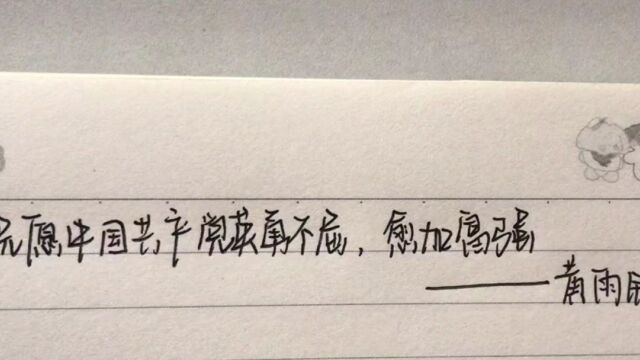 祝愿中国共产党英勇不屈，愈加富强
——黄雨